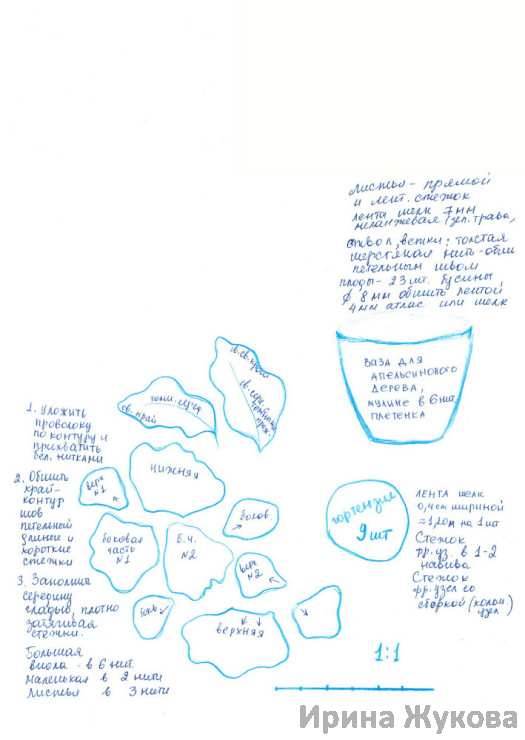 Листья - прямой
и лент. стежок
лента шелк 7мм
меланжевая (зел. трава,
ствол, ветки: толстая
шерстяная нить-обши
петельным швом
плоды - 23 шт. бусины
φ 8 мм обшить лентой
4 мм атлас или шелк
ваза для
апельсинового
дерева,
мулине в 6 нит.
плетенка
св. край
св. св. край
1. Уложить
проволоку
по контуру и
прихватить
бел. нитками
2. Обшить
край-
контур
шов
петельной
длинен и
короткие
стежки
3. Заполнив
середину
гладью, плотно
затягивая
стежки.
Большая
виола - в 6 нит.
маленькая в 2 нити
Листья в 3 нити
верх
№1
нижняя
боков.
боковая
часть
№1
б.ч.
№2
верх
№2
боков
верхняя
гортензии
9 шт
лента шелк
0,4 см шириной
=1,20м на 1 шт
Стежок
фр. уз. в 1-2
навива
Стежок
фр. узел со
сборкой (колон.
узел)
1:1
Ирина Жукова